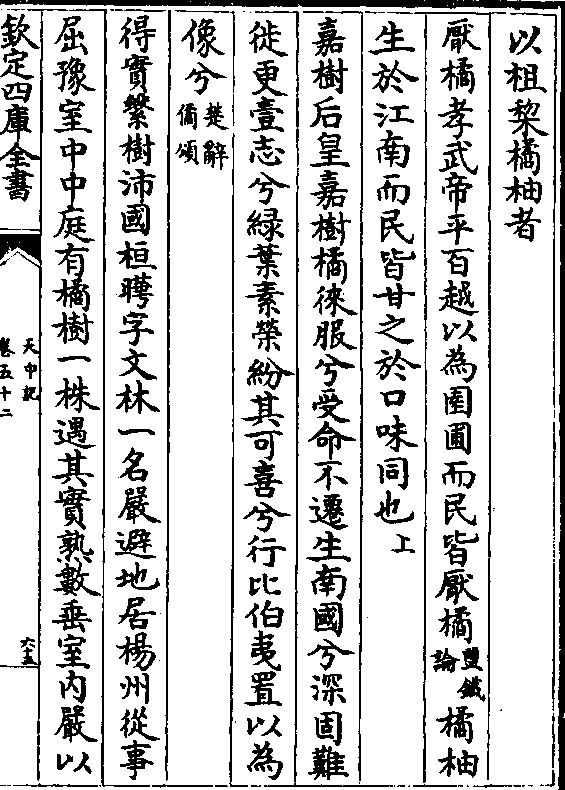 以柤棃橘柚者
厭橘孝武帝平百越以為園圃而民皆厭橘鹽鐵論橘柚
生於江南而民皆甘之於口味同也上
嘉樹后皇嘉樹橘徠服兮受命不遷生南國兮深固難
徙更壹志兮緑葉素榮紛其可喜兮行比伯夷置以為
像兮楚辭橘頌
得實繫樹沛國桓曄字文林一名嚴避地居楊州從事
屈豫室中中庭有橘樹一株遇其實熟數垂室内嚴以
欽定四庫全書
天中記
卷五十二
六十五